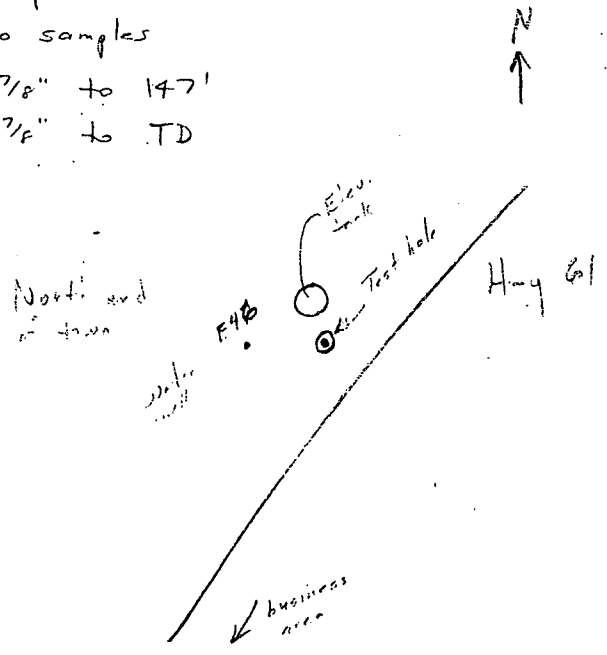 N
o samples
7/8" to 147'
7/8" to TD
Elev.
tank
Test hole
Hwy 61
North end
of town
E46
water
well
business
area